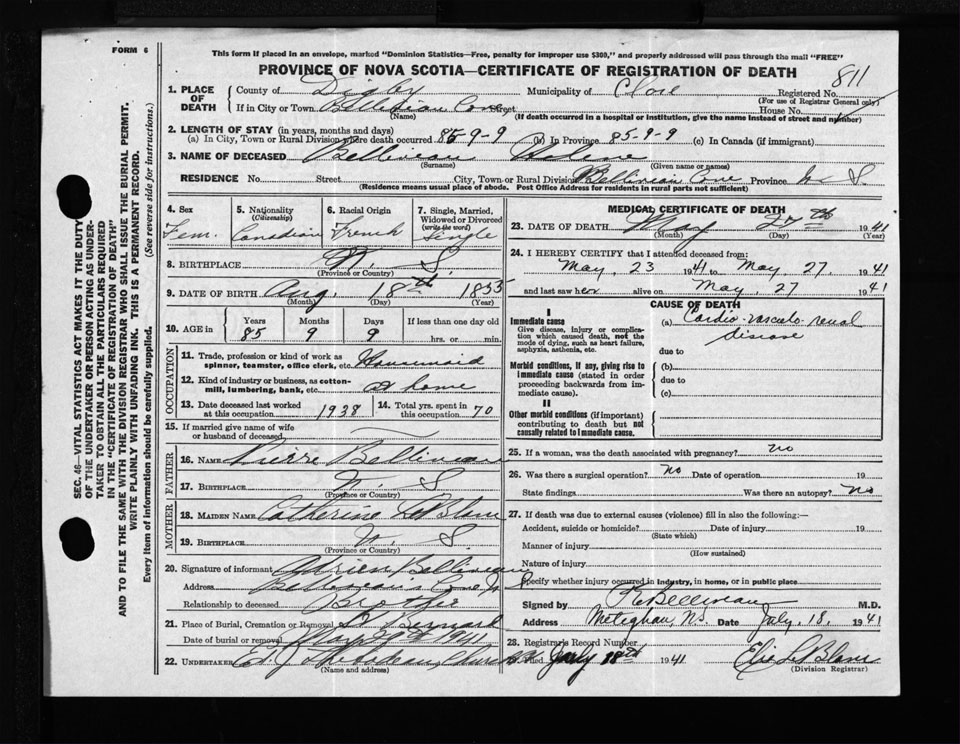 FORM 6
This form if placed in an envelope, marked "Dominion Statistics—Free, penalty for improper use $300," and properly addressed will pass through the mail "FREE"
PROVINCE OF NOVA SCOTIA—CERTIFICATE OF REGISTRATION OF DEATH
811
1. PLACE OF DEATH
County of Digby Municipality of Clare Registered No.
(For use of Registrar General only)
If in City or Town Belliveau Cove Street House No.
(Name) (If death occurred in a hospital or institution, give the name instead of street and number)
2. LENGTH OF STAY (in years, months and days)
(a) In City, Town or Rural Division where death occurred 85-9-9 (b) In Province 85-9-9 (c) In Canada (if immigrant)
3. NAME OF DECEASED Belliveau
(Surname) (Given name or names)
RESIDENCE No. Street City, Town or Rural Division Belliveau Cove Province N. S.
(Residence means usual place of abode. Post Office Address for residents in rural parts not sufficient)
4. Sex Fem.
5. Nationality (Citizenship) Canadian
6. Racial Origin French
7. Single, Married, Widowed or Divorced (write the word) Single
8. BIRTHPLACE N. S.
(Province or Country)
9. DATE OF BIRTH Aug. 18th 1855
(Month) (Day) (Year)
10. AGE in Years Months Days If less than one day old
85 9 9 hrs. or min.
OCCUPATION
11. Trade, profession or kind of work as spinner, teamster, office clerk, etc. Housemaid
12. Kind of industry or business, as cotton-mill, lumbering, bank, etc. at home
13. Date deceased last worked at this occupation 1938
14. Total yrs. spent in this occupation 70
15. If married give name of wife or husband of deceased
FATHER
16. NAME Pierre Belliveau
17. BIRTHPLACE N. S.
(Province or Country)
MOTHER
18. MAIDEN NAME Catherine LeBlanc
19. BIRTHPLACE N. S.
(Province or Country)
20. Signature of informant Adrien Belliveau
Address Belliveau's Cove, N S
Relationship to deceased Brother
21. Place of Burial, Cremation or Removal St Bernard
Date of burial or removal May 29th 1941
22. UNDERTAKER
(Name and address)
MEDICAL CERTIFICATE OF DEATH
23. DATE OF DEATH May 27th 1941
(Month) (Day) (Year)
24. I HEREBY CERTIFY that I attended deceased from:
May, 23 1941 to May, 27. 1941
and last saw her alive on May, 27 1941
CAUSE OF DEATH
I
Immediate cause
Give disease, injury or complication which caused death, not the mode of dying, such as heart failure, asphyxia, asthenia, etc.
(a) Cardio-vasculo-renal disease
due to
Morbid conditions, if any, giving rise to immediate cause (stated in order proceeding backwards from immediate cause).
(b)
due to
(c)
II
Other morbid conditions (if important) contributing to death but not causally related to immediate cause.
25. If a woman, was the death associated with pregnancy? no
26. Was there a surgical operation? No Date of operation 19
State findings Was there an autopsy? No
27. If death was due to external causes (violence) fill in also the following:—
Accident, suicide or homicide? Date of injury 19
(State which)
Manner of injury
(How sustained)
Nature of injury
Specify whether injury occurred in industry, in home, or in public place
Signed by Belliveau M.D.
Address Meteghan, N.S. Date July, 18, 1941
28. Registrar's Record Number
Filed July 18th 1941 Elie LeBlanc
(Division Registrar)
SEC. 46—VITAL STATISTICS ACT MAKES IT THE DUTY
OF THE UNDERTAKER OR PERSON ACTING AS UNDER-
TAKER TO OBTAIN ALL THE PARTICULARS REQUIRED
IN THE "CERTIFICATE OF REGISTRATION OF DEATH"
AND TO FILE THE SAME WITH THE DIVISION REGISTRAR WHO SHALL ISSUE THE BURIAL PERMIT.
WRITE PLAINLY WITH UNFADING INK. THIS IS A PERMANENT RECORD.
Every item of information should be carefully supplied. (See reverse side for instructions.)